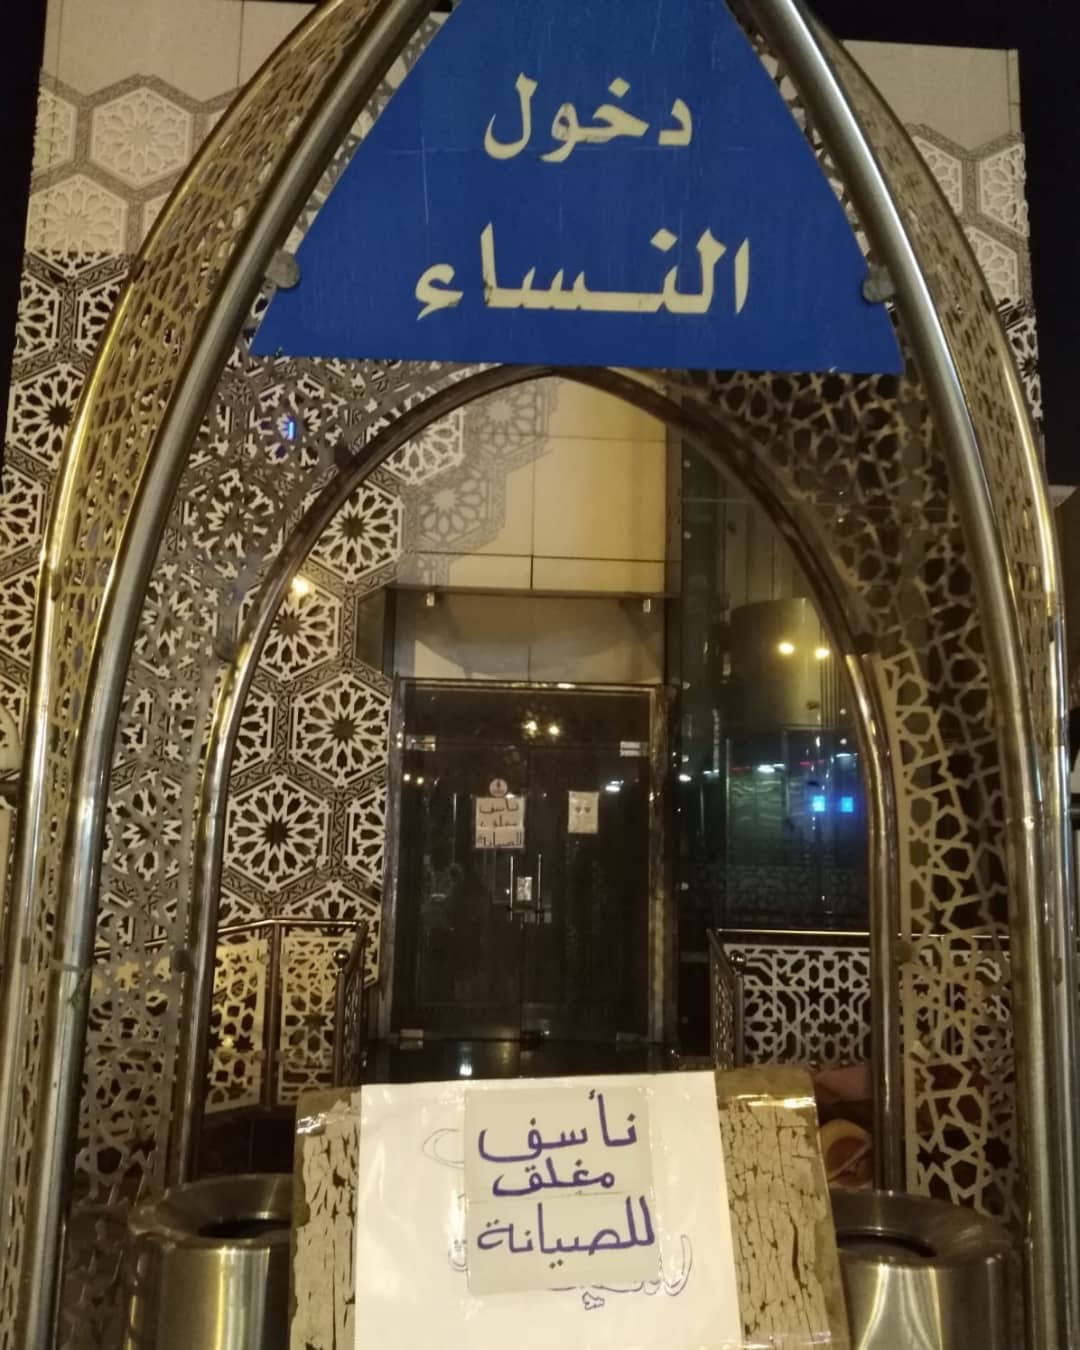 دخول
النساء
نأسف
مغلق
للصيانة
نأسف
مغلق
للصيانة